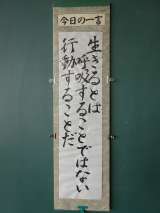 今日の一言
生きるとは
呼吸することではない
行動することだ